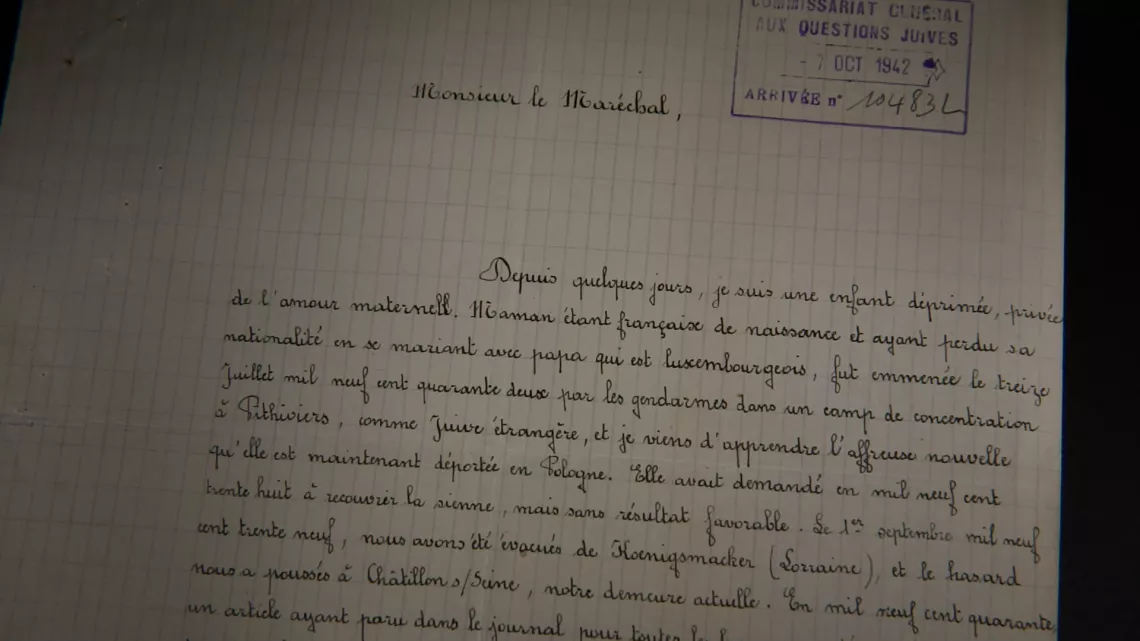 COMMISSARIAT GENERAL
AUX QUESTIONS JUIVES
- 7 OCT 1942
ARRIVÉE n° 104832
Monsieur le Maréchal,
Depuis quelques jours, je suis une enfant déprimée, privée
de l'amour maternell. Maman étant française de naissance et ayant perdu sa
nationalité en se mariant avec papa qui est luxembourgeois, fut emmenée le treize
Juillet mil neuf cent quarante deux par les gendarmes dans un camp de concentration
à Pithiviers, comme Juive étrangère, et je viens d'apprendre l'affreuse nouvelle
qu'elle est maintenant déportée en Pologne. Elle avait demandé en mil neuf cent
trente huit à recouvrir la sienne, mais sans résultat favorable. Le 1er septembre mil neuf
cent trente neuf, nous avons été évacués de Koenigsmacker (Lorraine), et le hasard
nous a poussés à Châtillon s/Seine, notre demeure actuelle. En mil neuf cent quarante,
un article ayant paru dans le journal pour toutes